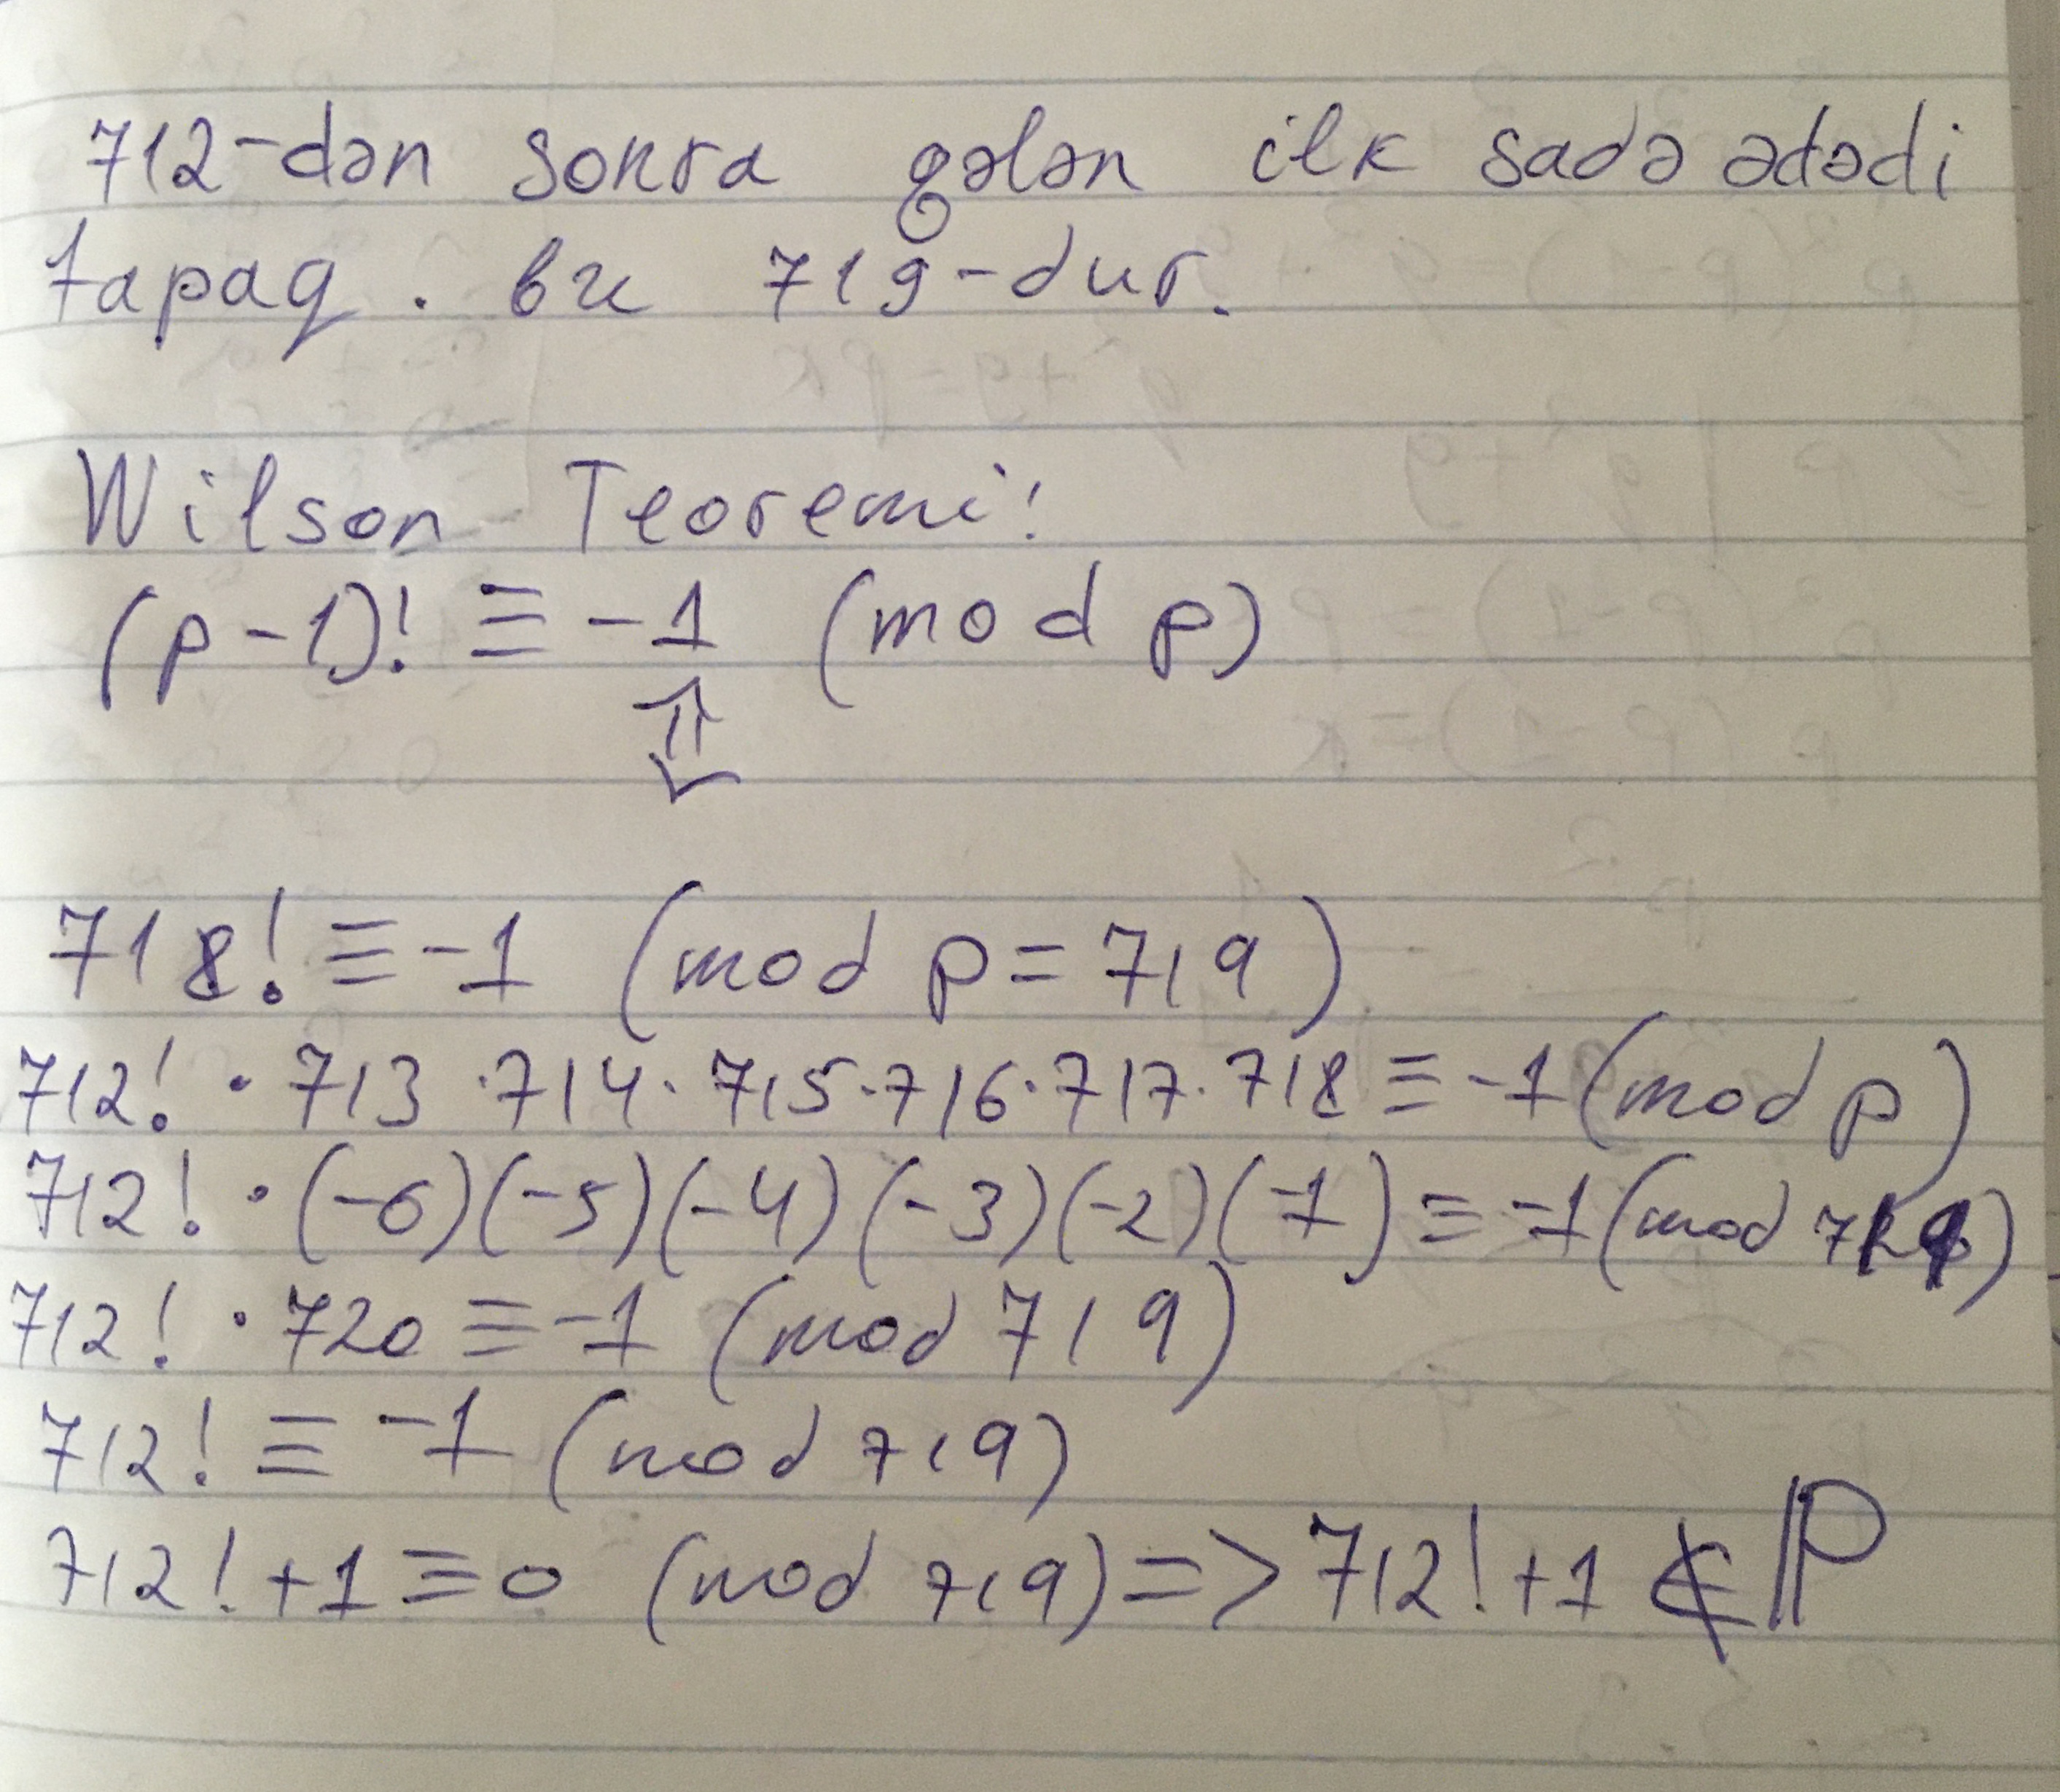 712-dən sonra gələn ilk sadə ədədi
tapaq. bu 719-dur.
Wilson Teoremi:
(p-1)! ≡ -1 (mod p)
⇕
718! ≡ -1 (mod p = 719)
712! · 713 · 714 · 715 · 716 · 717 · 718 ≡ -1 (mod p)
712! · (-6)(-5)(-4)(-3)(-2)(-1) ≡ -1 (mod 719)
712! · 720 ≡ -1 (mod 719)
712! ≡ -1 (mod 719)
712! + 1 ≡ 0 (mod 719) => 712! + 1 ∉ ℙ